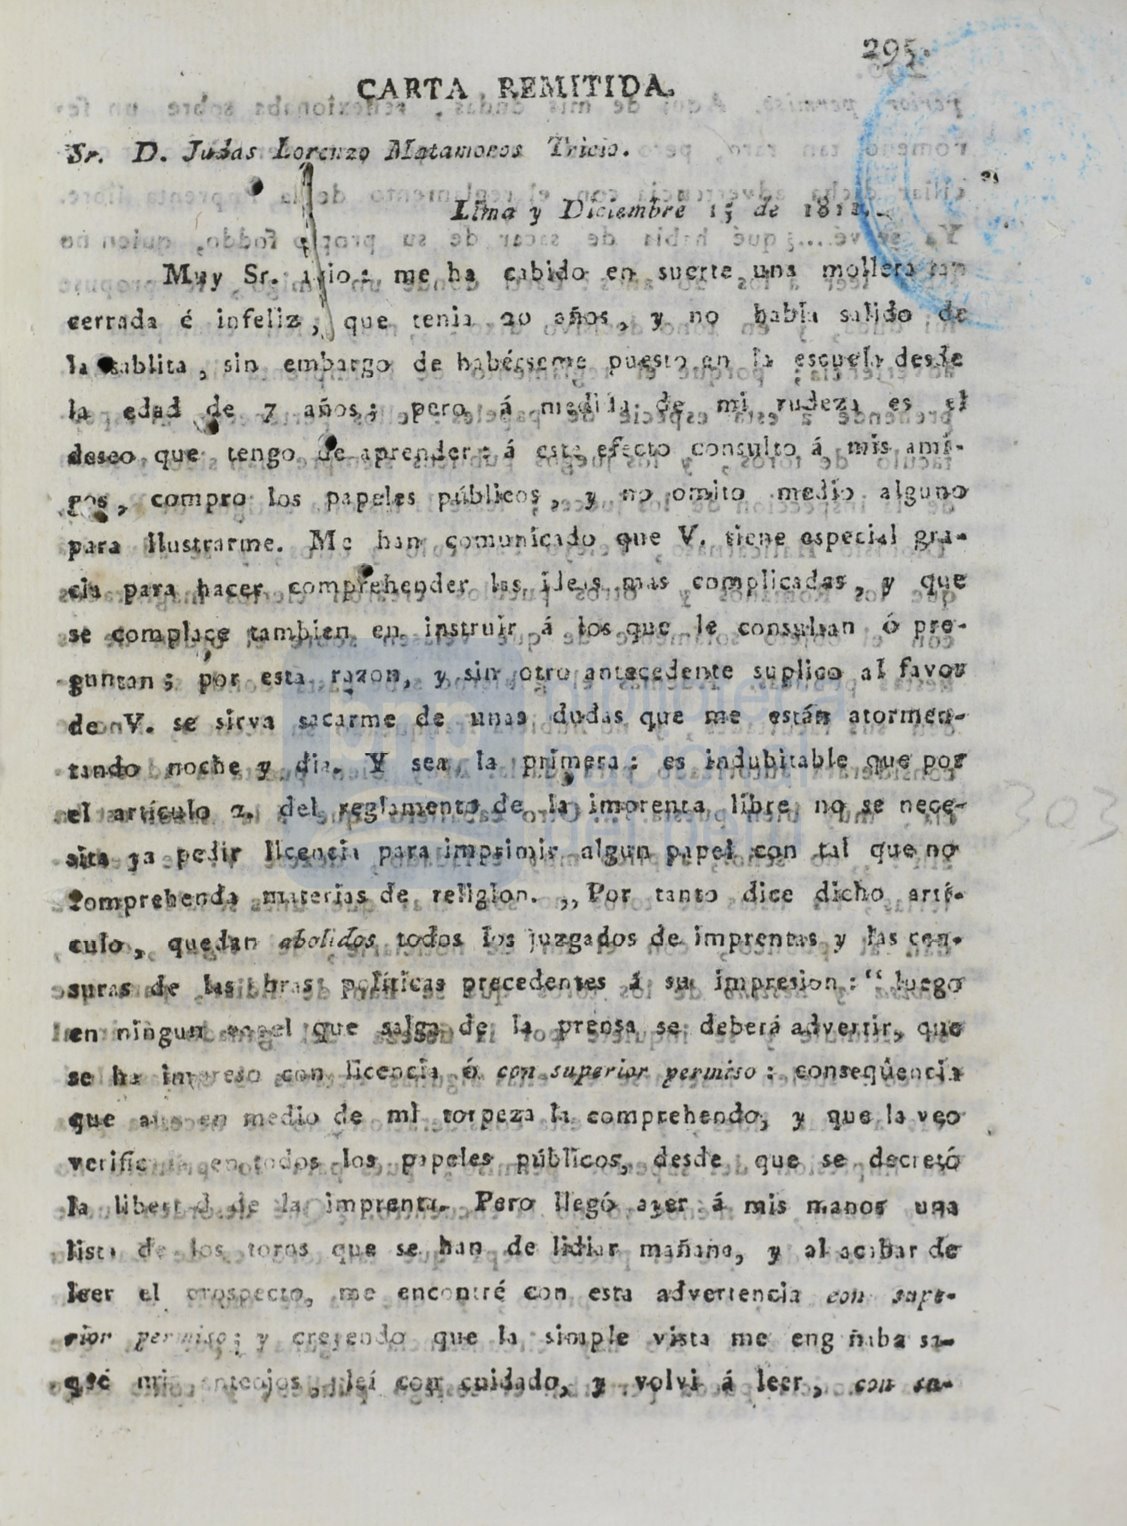 295.
CARTA REMITIDA.
Sr. D. Judas Lorenzo Matamoros Tricio.
Lima y Diciembre 15 de 1812.
Muy Sr. mio: me ha cabido en suerte una mollera tan
cerrada é infeliz, que tenia 20 años, y no habia salido de
la tablita, sin embargo de habérseme puesto en la escuela desde
la edad de 7 años; pero á medida de mi rudeza es el
deseo que tengo de aprender: á este efecto consulto á mis ami-
gos, compro los papeles públicos, y no omito medio alguno
para ilustrarme. Me han comunicado que V. tiene especial gra-
cia para hacer comprehender las ideas mas complicadas, y que
se complace tambien en instruir á los que le consultan ó pre-
guntan; por esta razon, y sin otro antecedente suplico al favor
de V. se sirva sacarme de unas dudas que me están atormen-
tando noche y dia. Y sea la primera: es indubitable que por
el artículo 2. del reglamento de la imprenta libre no se nece-
sita ya pedir licencia para imprimir algun papel con tal que no
comprehenda materias de religion. ,,Por tanto dice dicho artí-
culo, quedan abolidos todos los juzgados de imprentas y las cen-
suras de las obras políticas precedentes á su impresion:“ luego
en ningun papel que salga de la prensa se deberá advertir, que
se ha impreso con licencia ó con superior permiso: conseqüencia
que aun en medio de mi torpeza la comprehendo, y que la veo
verificada en todos los papeles públicos, desde que se decretó
la libertad de la imprenta. Pero llegó ayer á mis manos una
lista de los toros que se han de lidiar mañana, y al acabar de
leer el prospecto, me encontré con esta advertencia con supe-
rior permiso; y creyendo que la simple vista me engañaba sa-
qué mis anteojos, leí con cuidado, y volvi á leer, con su-
303